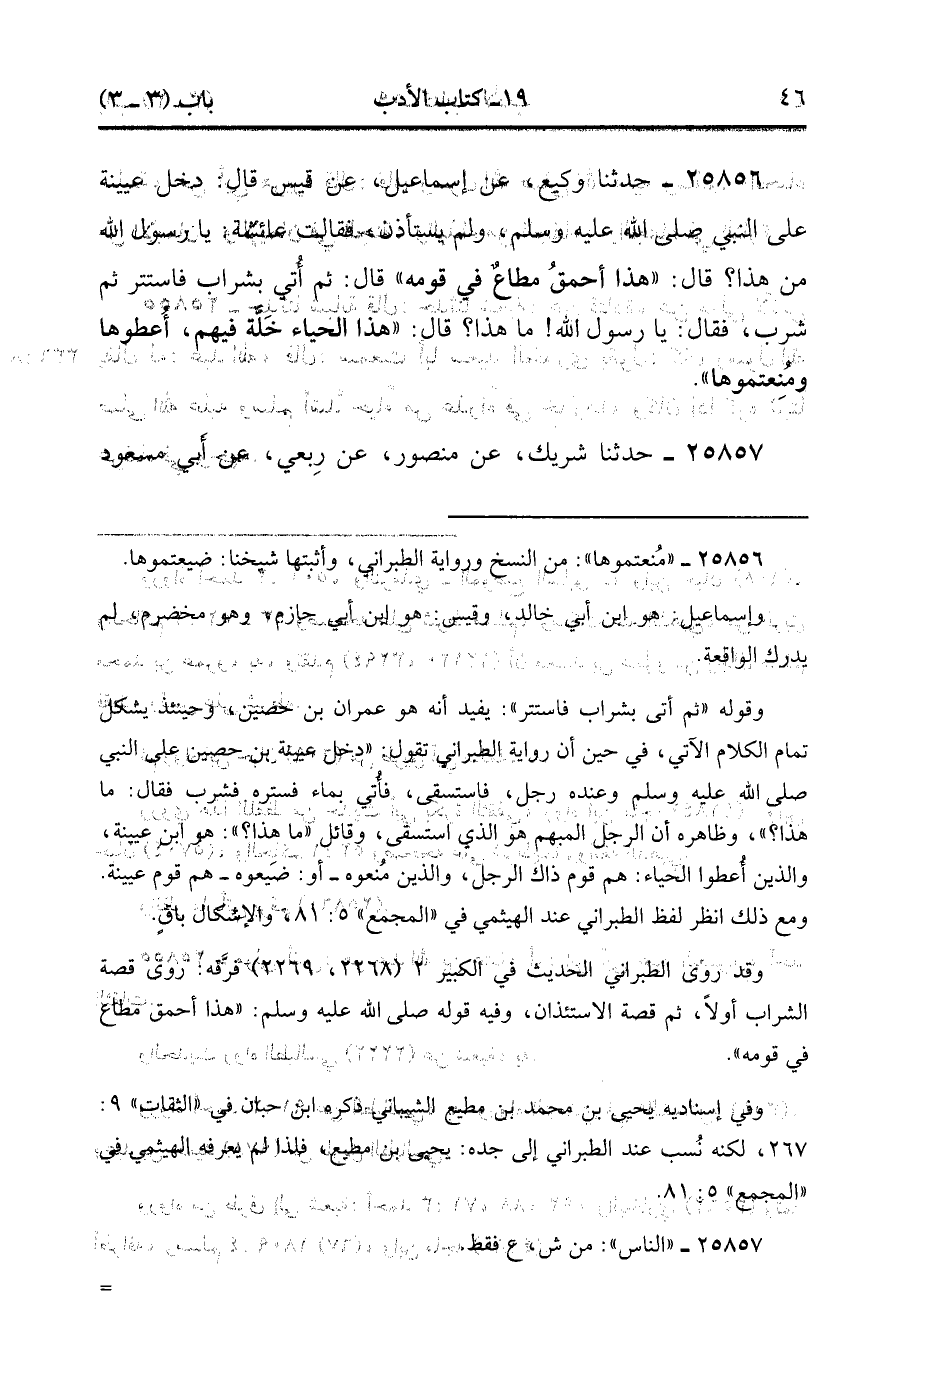 ٤٦ ١٩ - كتاب الأدب باب (٣ - ٣)
٢٥٨٥٦ - حدثنا وكيع، عن إسماعيل، عن قيس قال: دخل عيينة
على النبي صلى الله عليه وسلم، ولم يستأذن، فقالت عائشة: يا رسول الله
من هذا؟ قال: «هذا أحمقُ مطاعٌ في قومه» قال: ثم أُتي بشراب فاستتر ثم
شرب، فقال: يا رسول الله! ما هذا؟ قال: «هذا الحياء خَلَّة فيهم، أُعطوها
ومُنِعتموها».
٢٥٨٥٧ - حدثنا شريك، عن منصور، عن رِبعي، عن أَبي مسعود
٢٥٨٥٦ - «مُنعتموها»: من النسخ ورواية الطبراني، وأثبتها شيخنا: ضيعتموها.
وإسماعيل: هو ابن أبي خالد، وقيس: هو ابن أبي حازم، وهو مخضرم، لم
يدرك الواقعة.
وقوله «ثم أتى بشراب فاستتر»: يفيد أنه هو عمران بن حصين، وحينئذ يشكل
تمام الكلام الآتي، في حين أن رواية الطبراني تقول: «دخل عيينة بن حصين على النبي
صلى الله عليه وسلم وعنده رجل، فاستسقى، فأُتي بماء فستره فشرب فقال: ما
هذا؟»، وظاهره أن الرجل المبهم هو الذي استسقى، وقائل «ما هذا؟»: هو ابن عيينة،
والذين أُعطوا الحياء: هم قوم ذاك الرجل، والذين مُنعوه - أو: ضَيعوه - هم قوم عيينة.
ومع ذلك انظر لفظ الطبراني عند الهيثمي في «المجمع» ٥: ٨١، والإشكال باقٍ.
وقد روى الطبراني الحديث في الكبير ٢ (٢٢٦٨، ٢٢٦٩) فرَّقه: روى قصة
الشراب أولاً، ثم قصة الاستئذان، وفيه قوله صلى الله عليه وسلم: «هذا أحمق مطاع
في قومه».
وفي إسناديه يحيى بن محمد بن مطيع الشيباني ذكره ابن حبان في «الثقات» ٩:
٢٦٧، لكنه نُسب عند الطبراني إلى جده: يحيى بن مطيع، فلذا لم يعرفه الهيثمي في
«المجمع» ٥: ٨١.
٢٥٨٥٧ - «الناس»: من ش، ع فقط.
=